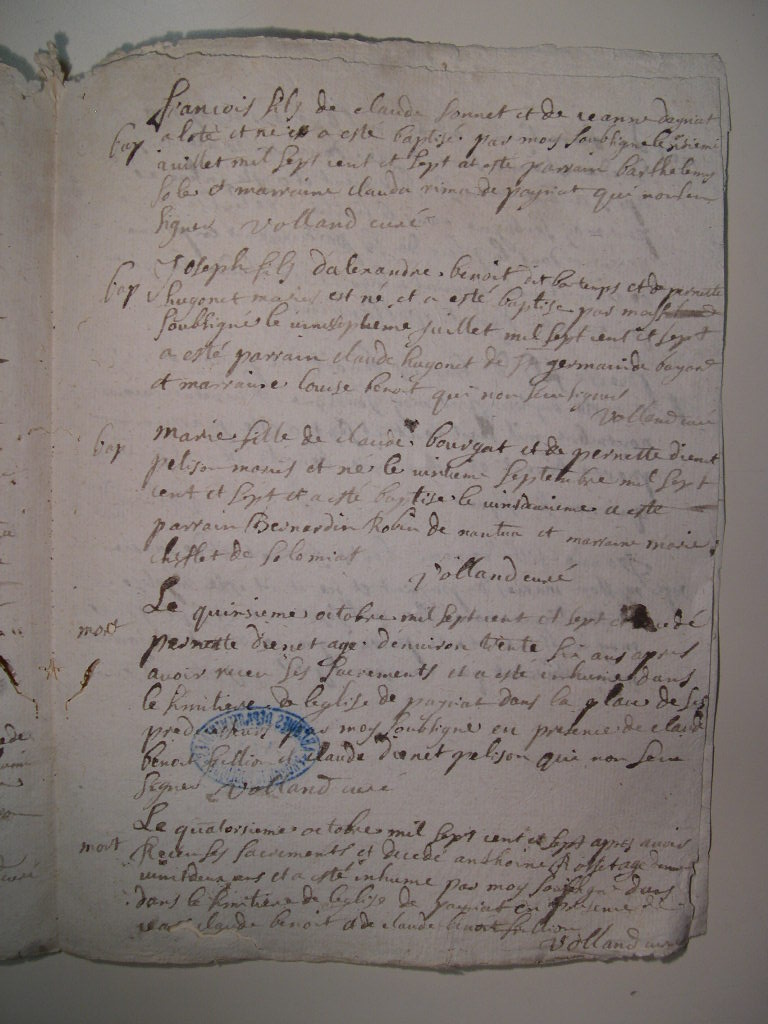 françois fils de claude sonnet et de jeanne dagniat
bap a loté et né et a esté baptisé par moy soubsigné le
juillet mil sept cent et sept a esté parrain barthelemy
et marraine clauda de payriat qui non sceu
signer Volland curé
bap Joseph fils dalexandre benoit dit et de pernette
hugonet mariés est né et a esté baptisé par moy
soubsigné le juillet mil sept cent et sept
a esté parrain claude hugonet de St germain de
et marraine louise benoit qui non sceu signer
Volland curé
bap marie fille de claude bourgat et de pernette dienet
pelison mariés et né le vintiem septembre mil sept
cent et sept et a esté baptisé le a esté
parrain Bernardin Robin de nantua et marraine marie
chifflet de solomiat
Volland curé
mort Le quinsieme octobre mil sept cent et sept et decedé
pernette dienet age denviron trente six ans apres
avoir receu ses sacrements et a esté inhumé dans
le simitiere de leglise de payriat dans la place de ses
predecesseurs par moy soubsigné en presence de claude
benoit et claude dienet pelison qui non sceu
signer Volland curé
mort Le quatorsieme octobre mil sept cent et sept apres avoir
Receu ses sacrements et decedé anthoine Rosset age denviron
vintdeux ans et a esté inhumé par moy soubsigné dans
dans le simitiere de leglise de payriat en presence de
claude benoit et de claude
Volland curé